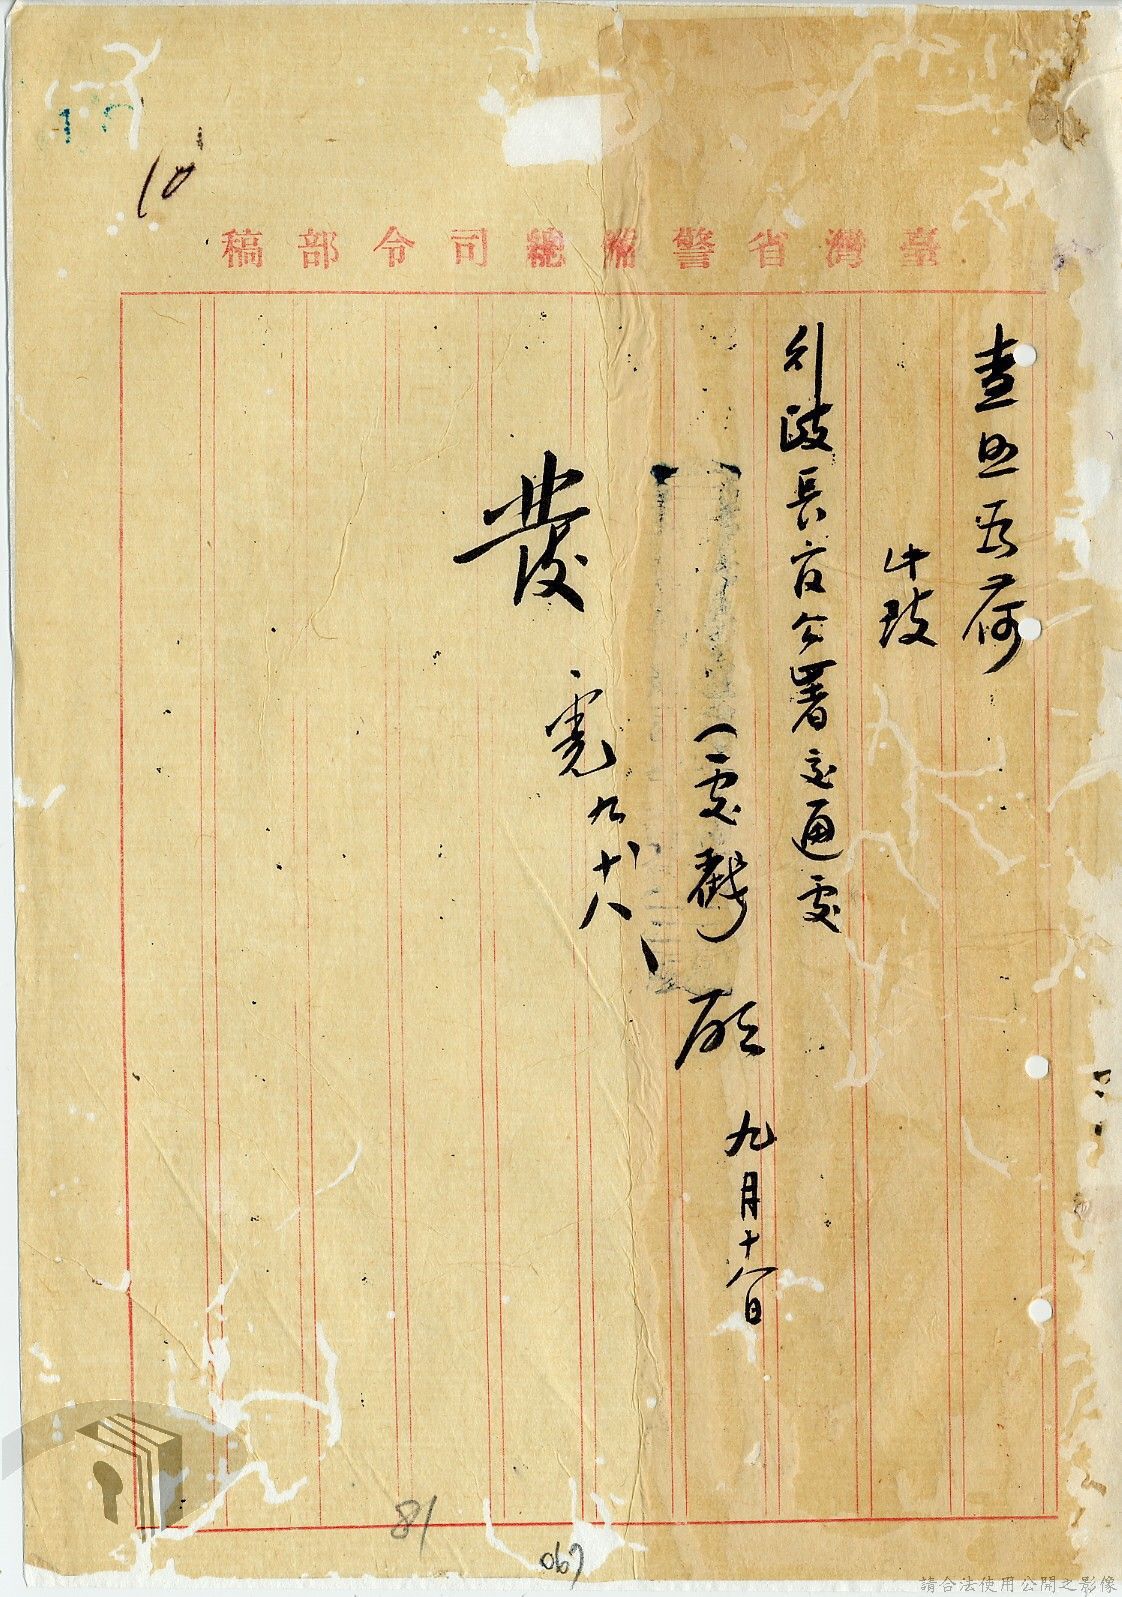 臺灣省警備總司令部稿
查照為荷
此致
行政長官公署交通處
九月十八日
發
九 十八
10
81
067
請合法使用公開之影像